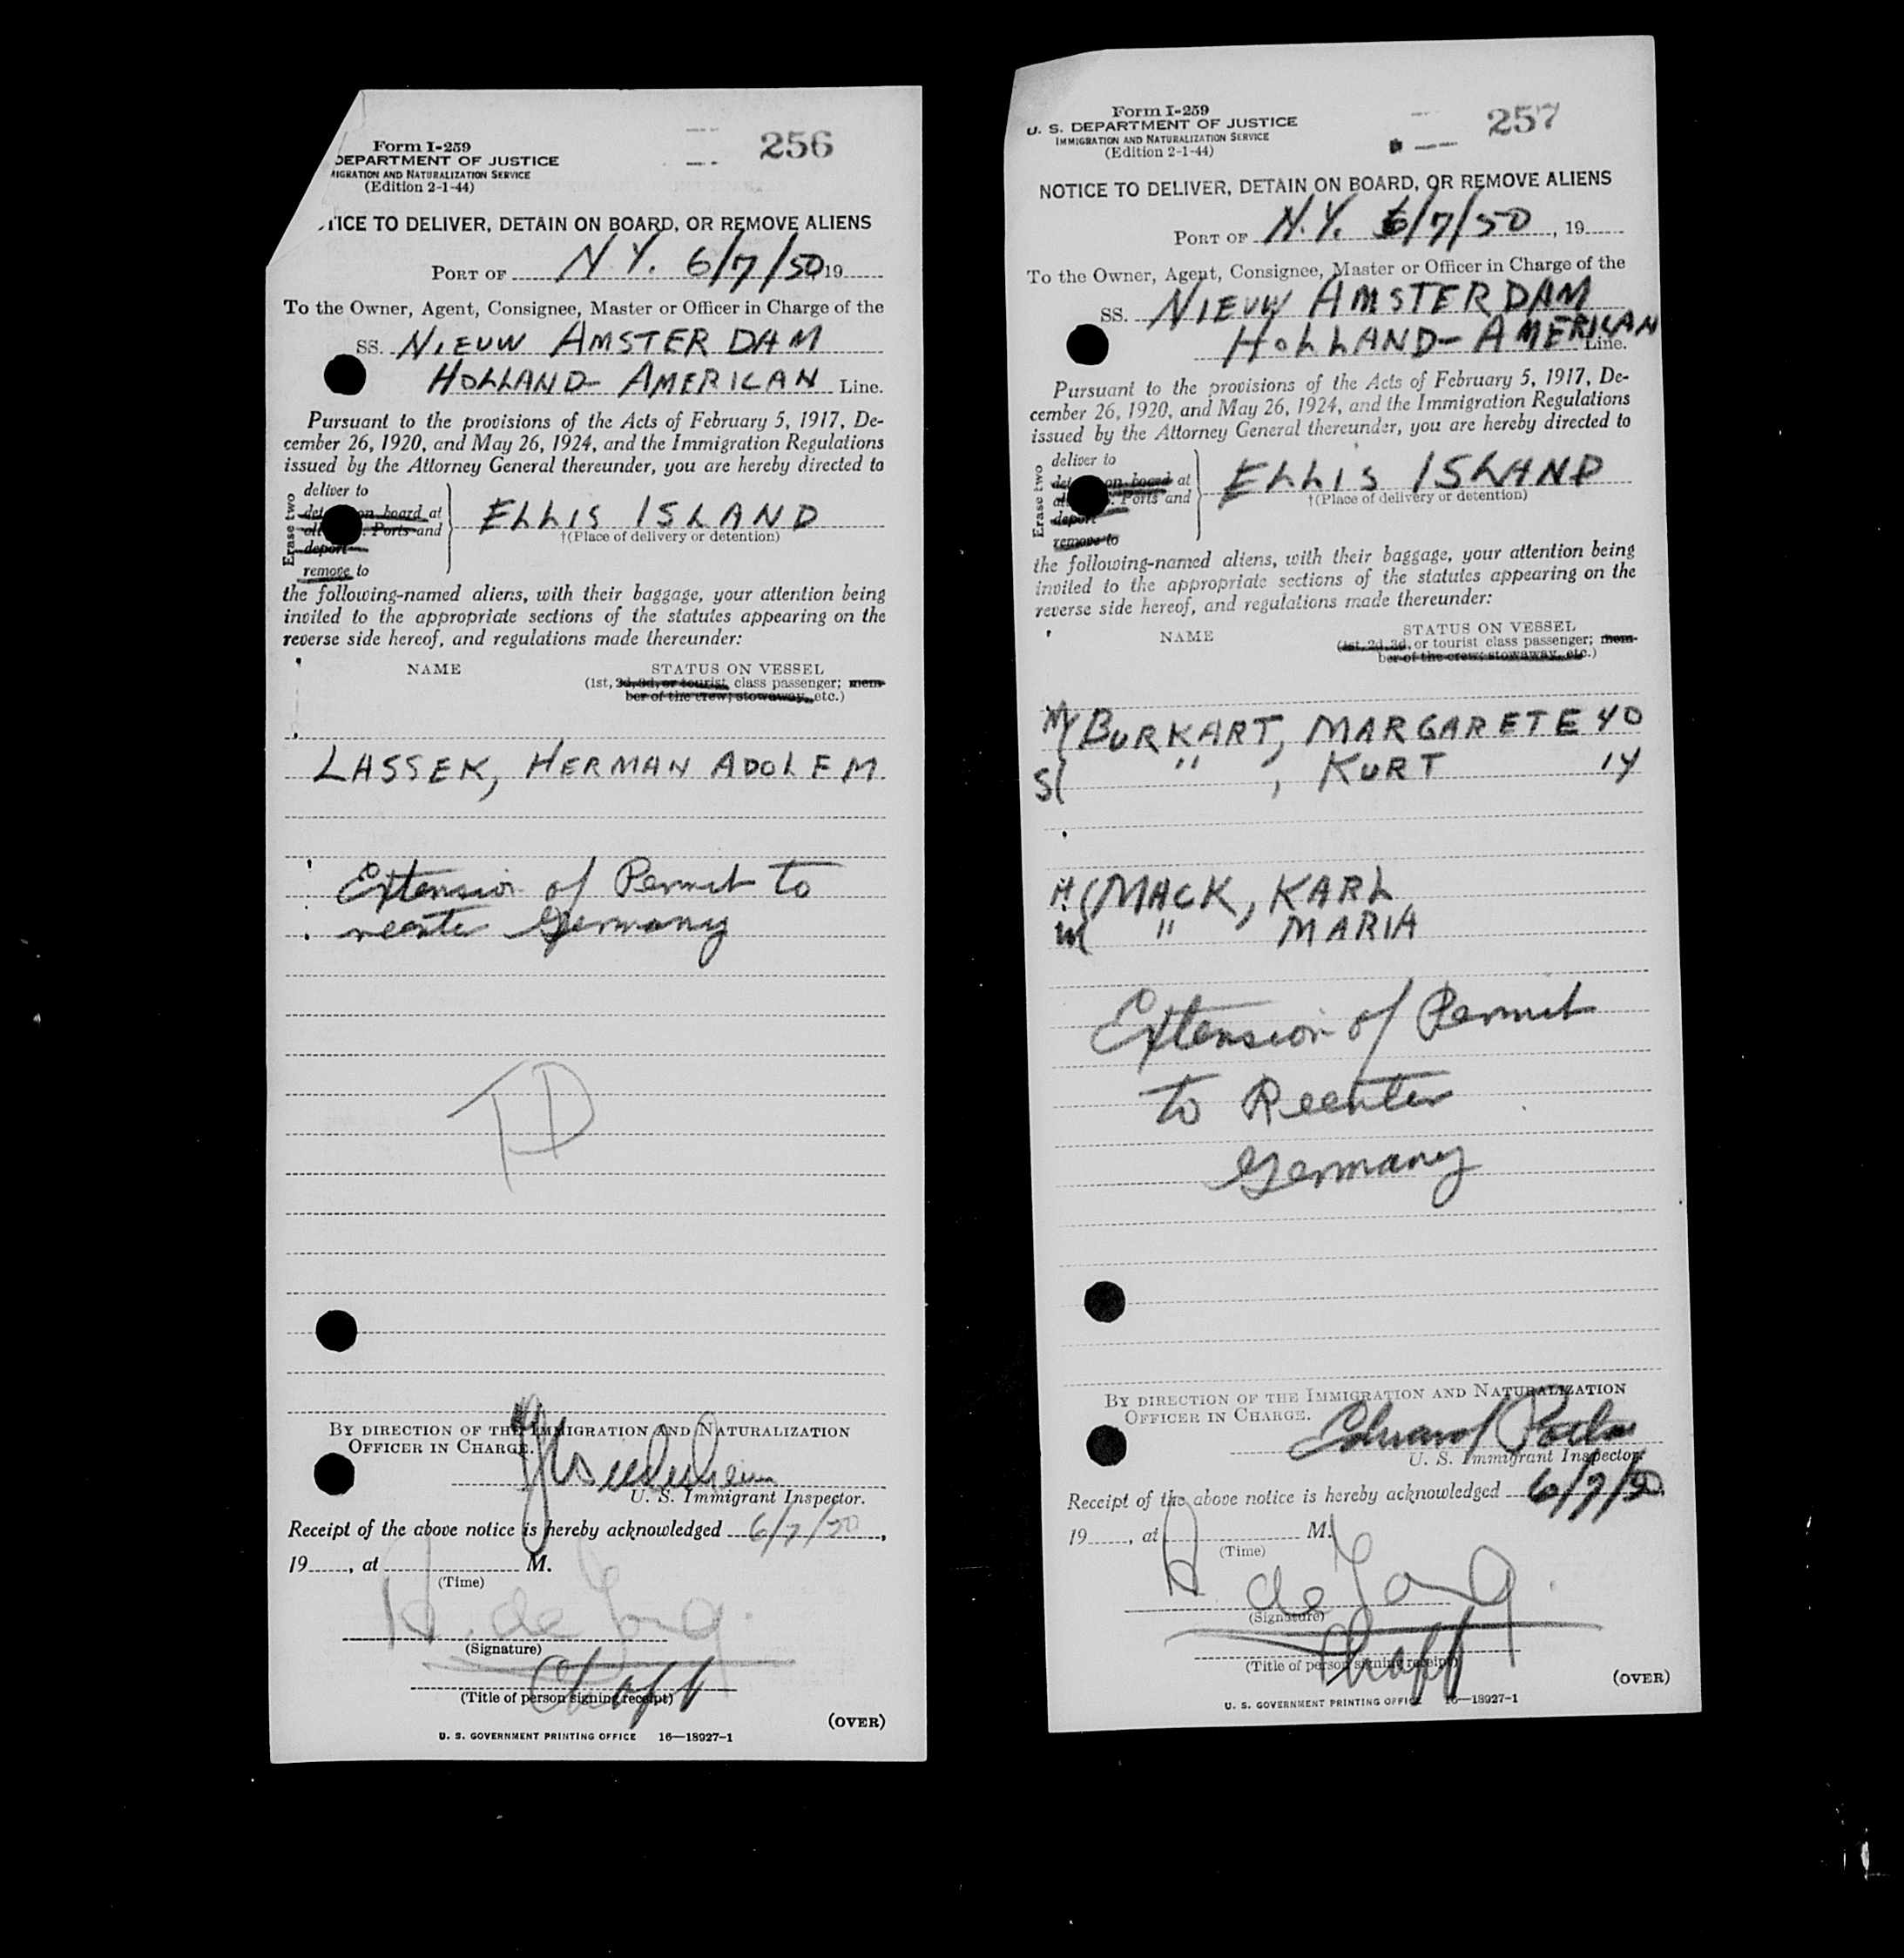 Form I-259
DEPARTMENT OF JUSTICE
IGRATION AND NATURALIZATION SERVICE
(Edition 2-1-44)
256
TICE TO DELIVER, DETAIN ON BOARD, OR REMOVE ALIENS
PORT OF N.Y. 6/7/50 19
To the Owner, Agent, Consignee, Master or Officer in Charge of the
SS. NIEUW AMSTERDAM
HOLLAND-AMERICAN Line.
Pursuant to the provisions of the Acts of February 5, 1917, De-
cember 26, 1920, and May 26, 1924, and the Immigration Regulations
issued by the Attorney General thereunder, you are hereby directed to
Erase two
deliver to
on board at
Ports and
deport
remove to
ELLIS ISLAND
†(Place of delivery or detention)
the following-named aliens, with their baggage, your attention being
invited to the appropriate sections of the statutes appearing on the
reverse side hereof, and regulations made thereunder:
NAME STATUS ON VESSEL
(1st, 2d, 3d, or tourist class passenger; mem-
ber of the crew; stowaway, etc.)
LASSEK, HERMAN ADOLF M.
Extension of Permit to
reenter Germany
TD
BY DIRECTION OF THE IMMIGRATION AND NATURALIZATION
OFFICER IN CHARGE.
U. S. Immigrant Inspector.
Receipt of the above notice is hereby acknowledged 6/7/50,
19, at M.
(Time)
H. de Jong.
(Signature)
(Title of person signing receipt)
(OVER)
U. S. GOVERNMENT PRINTING OFFICE 16—18927-1
Form I-259
U. S. DEPARTMENT OF JUSTICE
IMMIGRATION AND NATURALIZATION SERVICE
(Edition 2-1-44)
257
NOTICE TO DELIVER, DETAIN ON BOARD, OR REMOVE ALIENS
PORT OF N.Y. 6/7/50, 19
To the Owner, Agent, Consignee, Master or Officer in Charge of the
SS. NIEUW AMSTERDAM
HOLLAND-AMERICAN Line.
Pursuant to the provisions of the Acts of February 5, 1917, De-
cember 26, 1920, and May 26, 1924, and the Immigration Regulations
issued by the Attorney General thereunder, you are hereby directed to
Erase two
deliver to
on board at
Ports and
deport
remove to
ELLIS ISLAND
†(Place of delivery or detention)
the following-named aliens, with their baggage, your attention being
invited to the appropriate sections of the statutes appearing on the
reverse side hereof, and regulations made thereunder:
NAME STATUS ON VESSEL
(1st, 2d, 3d, or tourist class passenger; mem-
ber of the crew; stowaway, etc.)
M( BURKART, MARGARETE 40
S( " , KURT 14
H( MACK, KARL
W( " MARIA
Extension of Permit
to Reenter
Germany
BY DIRECTION OF THE IMMIGRATION AND NATURALIZATION
OFFICER IN CHARGE.
Edward
U. S. Immigrant Inspector.
Receipt of the above notice is hereby acknowledged 6/7/50,
19, at M.
(Time)
H. de Jong.
(Signature)
(Title of person signing receipt)
(OVER)
U. S. GOVERNMENT PRINTING OFFICE 16—18927-1